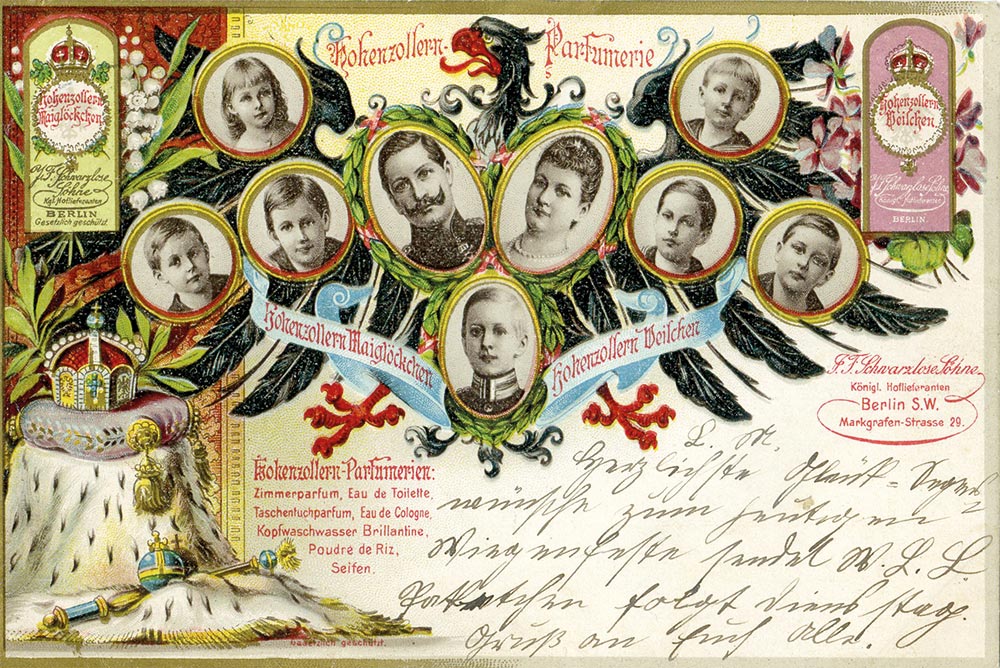 Hohenzollern-Parfumerie
Hohenzollern
Maiglöckchen
J. F. Schwarzlose
Söhne
Kgl. Hoflieferanten
BERLIN
Gesetzlich geschützt.
Hohenzollern
Veilchen
J. F. Schwarzlose Söhne
Königl. Hoflieferanten
BERLIN.
Hohenzollern Maiglöckchen
Hohenzollern Veilchen
J. F. Schwarzlose Söhne
Königl. Hoflieferanten
Berlin S.W.
Markgrafen-Strasse 29.
Hohenzollern-Parfumerien:
Zimmerparfum, Eau de Toilette,
Taschentuchparfum, Eau de Cologne,
Kopfwaschwasser Brillantine,
Poudre de Riz,
Seifen.
Gesetzlich geschützt.
L. M.
Herzlichste Glück- Segens
wünsche zum heutigen
Wiegenfeste sendet W. L. L.
Packetchen folgt Dienstag.
Gruß an Euch Alle.